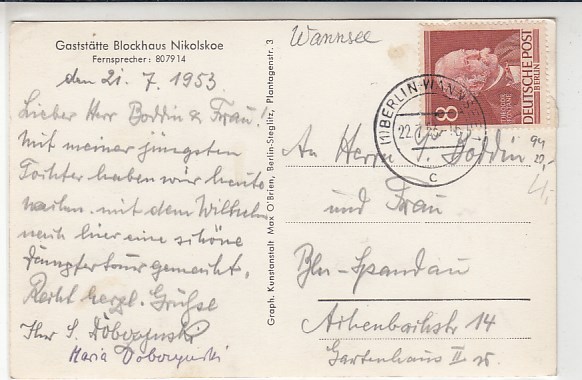 Gaststätte Blockhaus Nikolskoe
Fernsprecher: 807914
den 21. 7. 1953
Lieber Herr Boddin & Frau!
Mit meiner jüngsten
Tochter haben wir heute
mit dem
nach hier eine schöne
Dampfertour gemacht.
Recht herzl. Grüsse
Ihr S. Doborzynski
Maria Doborzynski
Graph. Kunstanstalt Max O'Brien, Berlin-Steglitz, Plantagenstr. 3
Wannsee
DEUTSCHE POST
BERLIN
THEODOR
FONTANE
8
(1) BERLIN-WANNSEE
22.7.53
c
An Herrn
Boddin
und Frau
Bln-Spandau
14
Gartenhaus II
94
20,-
4,-